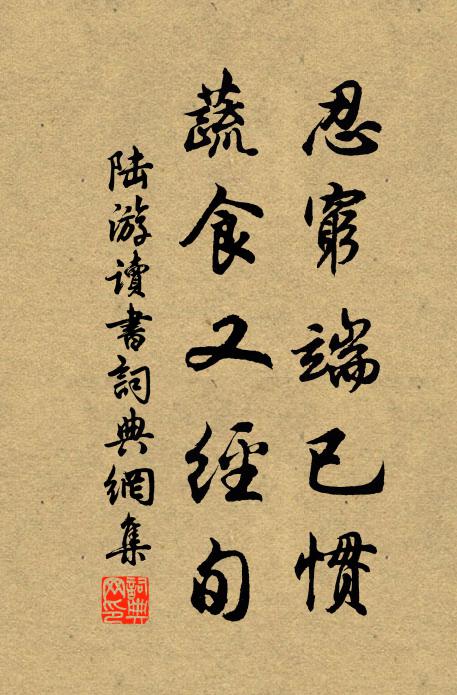 忍窮端已慣
蔬食又經旬
陸游讀書詞典網集
詞典網印